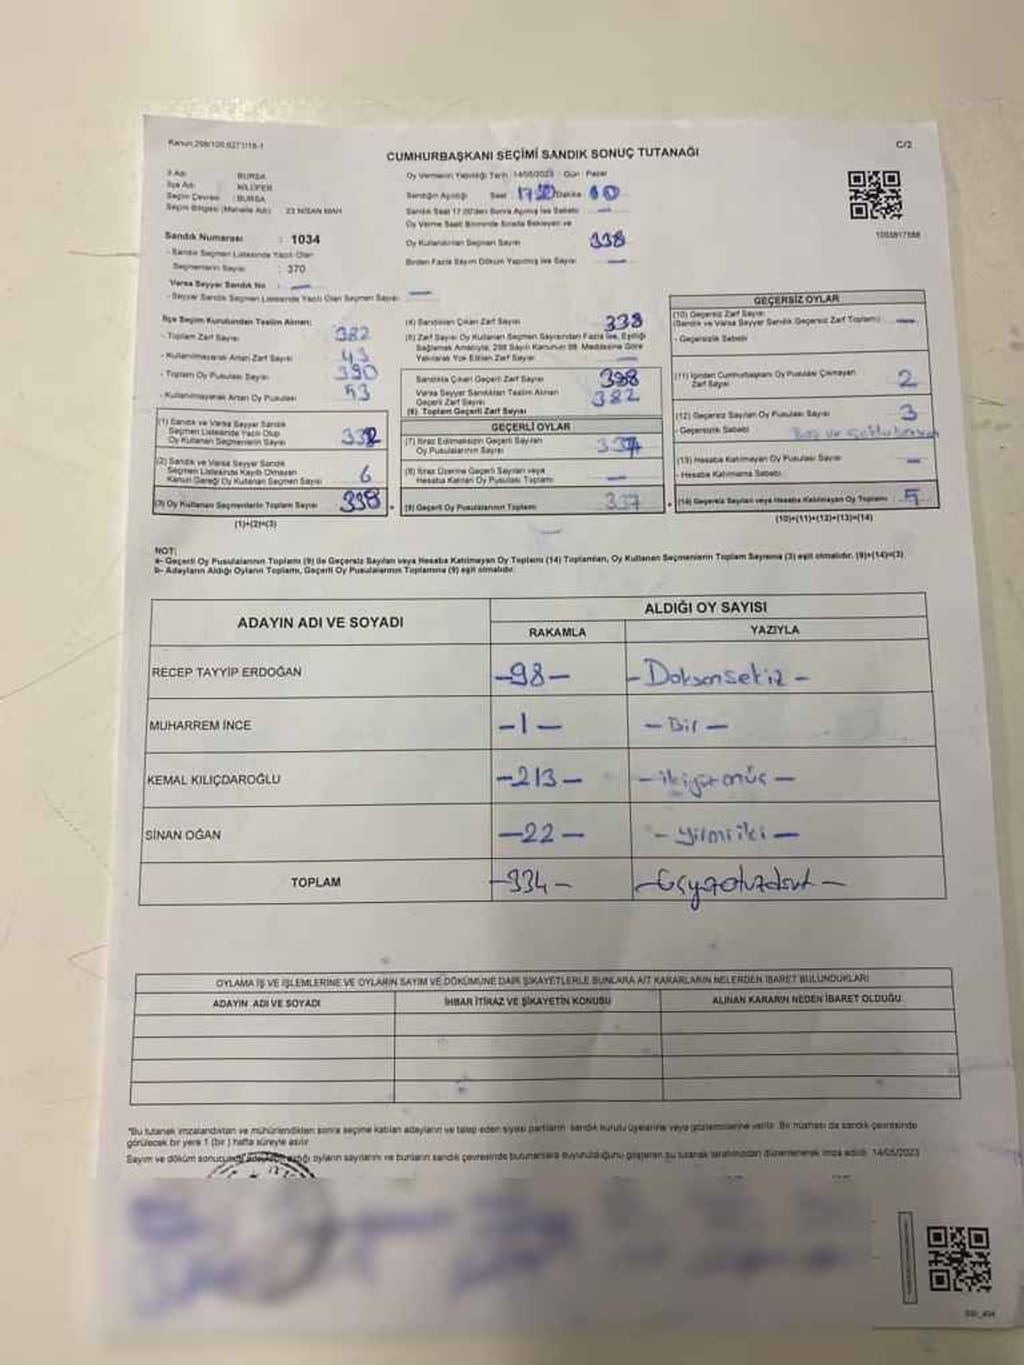 Kanun:298/105,6271/18-1
CUMHURBAŞKANI SEÇİMİ SANDIK SONUÇ TUTANAĞI
C/2
İl Adı : BURSA
İlçe Adı : NİLÜFER
Seçim Çevresi : BURSA
Seçim Bölgesi (Mahalle Adı) : 23 NİSAN MAH
Oy Vermenin Yapıldığı Tarih : 14/05/2023 Gün : Pazar
Sandığın Açıldığı Saat Dakika
Sandık Saat 17.00'den Sonra Açılmış İse Sebebi : —
Oy Verme Saati Bitiminde Sırada Bekleyen ve
Oy Kullandırılan Seçmen Sayısı 338
Birden Fazla Sayım Döküm Yapılmış İse Sayısı —
Sandık Numarası : 1034
- Sandık Seçmen Listesinde Yazılı Olan
Seçmenlerin Sayısı : 370
Varsa Seyyar Sandık No : —
- Seyyar Sandık Seçmen Listesinde Yazılı Olan Seçmen Sayısı —
İlçe Seçim Kurulundan Teslim Alınan:
- Toplam Zarf Sayısı 382
- Kullanılmayarak Artan Zarf Sayısı 43
- Toplam Oy Pusulası Sayısı 390
- Kullanılmayarak Artan Oy Pusulası 53
(1) Sandık ve Varsa Seyyar Sandık
Seçmen Listesinde Yazılı Olup
Oy Kullanan Seçmenlerin Sayısı 332
(2) Sandık ve Varsa Seyyar Sandık
Seçmen Listesinde Kayıtlı Olmayan
Kanun Gereği Oy Kullanan Seçmen Sayısı 6
(3) Oy Kullanan Seçmenlerin Toplam Sayısı 338
(1)+(2)=(3)
(4) Sandıktan Çıkan Zarf Sayısı 338
(5) Zarf Sayısı Oy Kullanan Seçmen Sayısından Fazla İse, Eşitliği
Sağlamak Amacıyla, 298 Sayılı Kanunun 98. Maddesine Göre
Yakılarak Yok Edilen Zarf Sayısı —
Sandıkta Çıkan Geçerli Zarf Sayısı 338
Varsa Seyyar Sandıktan Teslim Alınan
Geçerli Zarf Sayısı 382
(6) Toplam Geçerli Zarf Sayısı
GEÇERLİ OYLAR
(7) İtiraz Edilmeksizin Geçerli Sayılan
Oy Pusulalarının Sayısı
(8) İtiraz Üzerine Geçerli Sayılan veya
Hesaba Katılan Oy Pusulası Toplamı —
(9) Geçerli Oy Pusulalarının Toplamı 337
GEÇERSİZ OYLAR
(10) Geçersiz Zarf Sayısı
(Sandık ve Varsa Seyyar Sandık Geçersiz Zarf Toplamı) —
- Geçersizlik Sebebi
(11) İçinden Cumhurbaşkanı Oy Pusulası Çıkmayan
Zarf Sayısı 2
(12) Geçersiz Sayılan Oy Pusulası Sayısı 3
- Geçersizlik Sebebi
(13) Hesaba Katılmayan Oy Pusulası Sayısı —
- Hesaba Katılmama Sebebi
(14) Geçersiz Sayılan veya Hesaba Katılmayan Oy Toplamı 5
(10)+(11)+(12)+(13)=(14)
NOT:
a- Geçerli Oy Pusulalarının Toplamı (9) ile Geçersiz Sayılan veya Hesaba Katılmayan Oy Toplamı (14) Toplamları, Oy Kullanan Seçmenlerin Toplam Sayısına (3) eşit olmalıdır. (9)+(14)=(3)
b- Adayların Aldığı Oyların Toplamı, Geçerli Oy Pusulalarının Toplamına (9) eşit olmalıdır.
ADAYIN ADI VE SOYADI
ALDIĞI OY SAYISI
RAKAMLA YAZIYLA
RECEP TAYYİP ERDOĞAN -98- - Doksansekiz -
MUHARREM İNCE -1- - Bir -
KEMAL KILIÇDAROĞLU -213- - ikiyüzonüç -
SİNAN OĞAN -22- - yirmiiki -
TOPLAM -334- - Üçyüzotuzdört -
OYLAMA İŞ VE İŞLEMLERİNE VE OYLARIN SAYIM VE DÖKÜMÜNE DAİR ŞİKAYETLERLE BUNLARA AİT KARARLARIN NELERDEN İBARET BULUNDUKLARI
ADAYIN ADI VE SOYADI İHBAR İTİRAZ VE ŞİKAYETİN KONUSU ALINAN KARARIN NEDEN İBARET OLDUĞU
*Bu tutanak imzalandıktan ve mühürlendikten sonra seçime katılan adayların ve talep eden siyasi partilerin sandık kurulu üyelerine veya gözlemcilerine verilir. Bir nüshası da sandık çevresinde
görülecek bir yere 1 (bir) hafta süreyle asılır
Sayım ve döküm sonucunda adayların aldığı oyların sayılarını ve bunların sandık çevresinde bulunanlara duyurulduğunu gösteren bu tutanak tarafımızdan düzenlenerek imza edildi. 14/05/2023